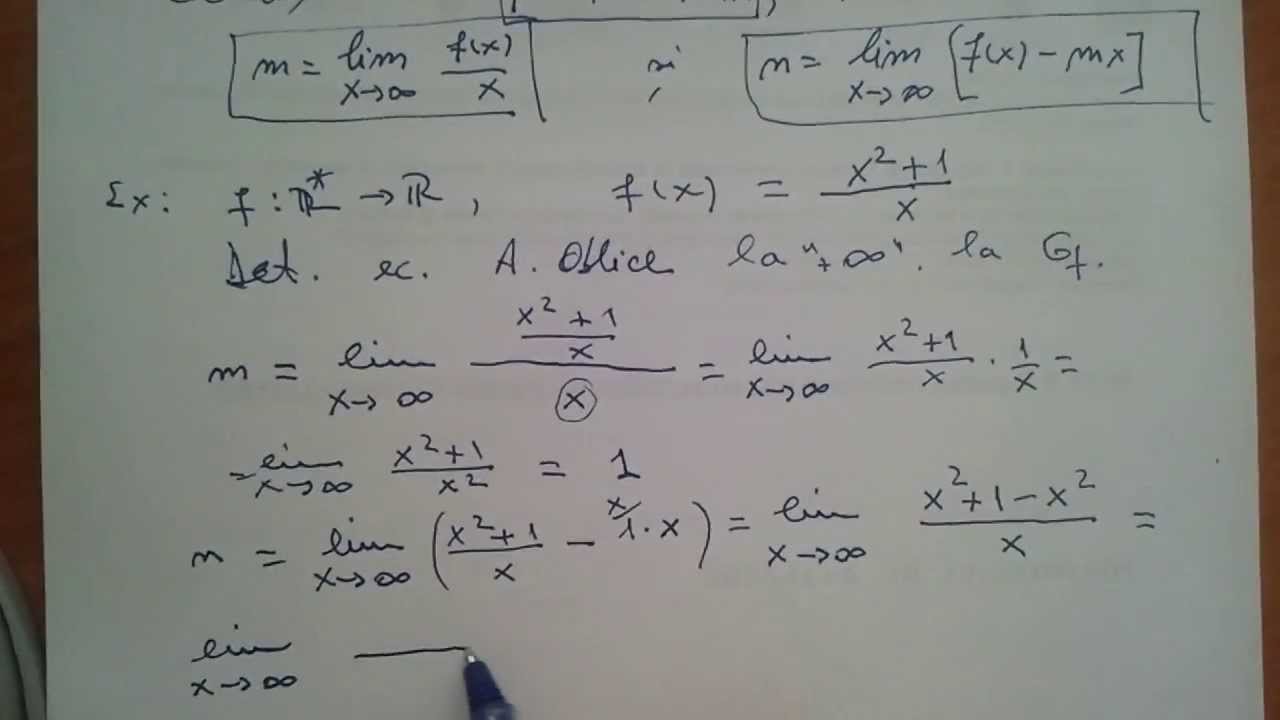 m = lim x→∞ f(x)/x și n = lim x→∞ [f(x) - mx]
Ex: f : ℝ* → ℝ, f(x) = (x²+1)/x
Det. ec. A. Oblice la "+∞". la Gf.
m = lim x→∞ ((x²+1)/x)/x = lim x→∞ (x²+1)/x · 1/x =
= lim x→∞ (x²+1)/x² = 1
n = lim x→∞ ((x²+1)/x - ˣ⁄1·x) = lim x→∞ (x²+1-x²)/x =
lim x→∞